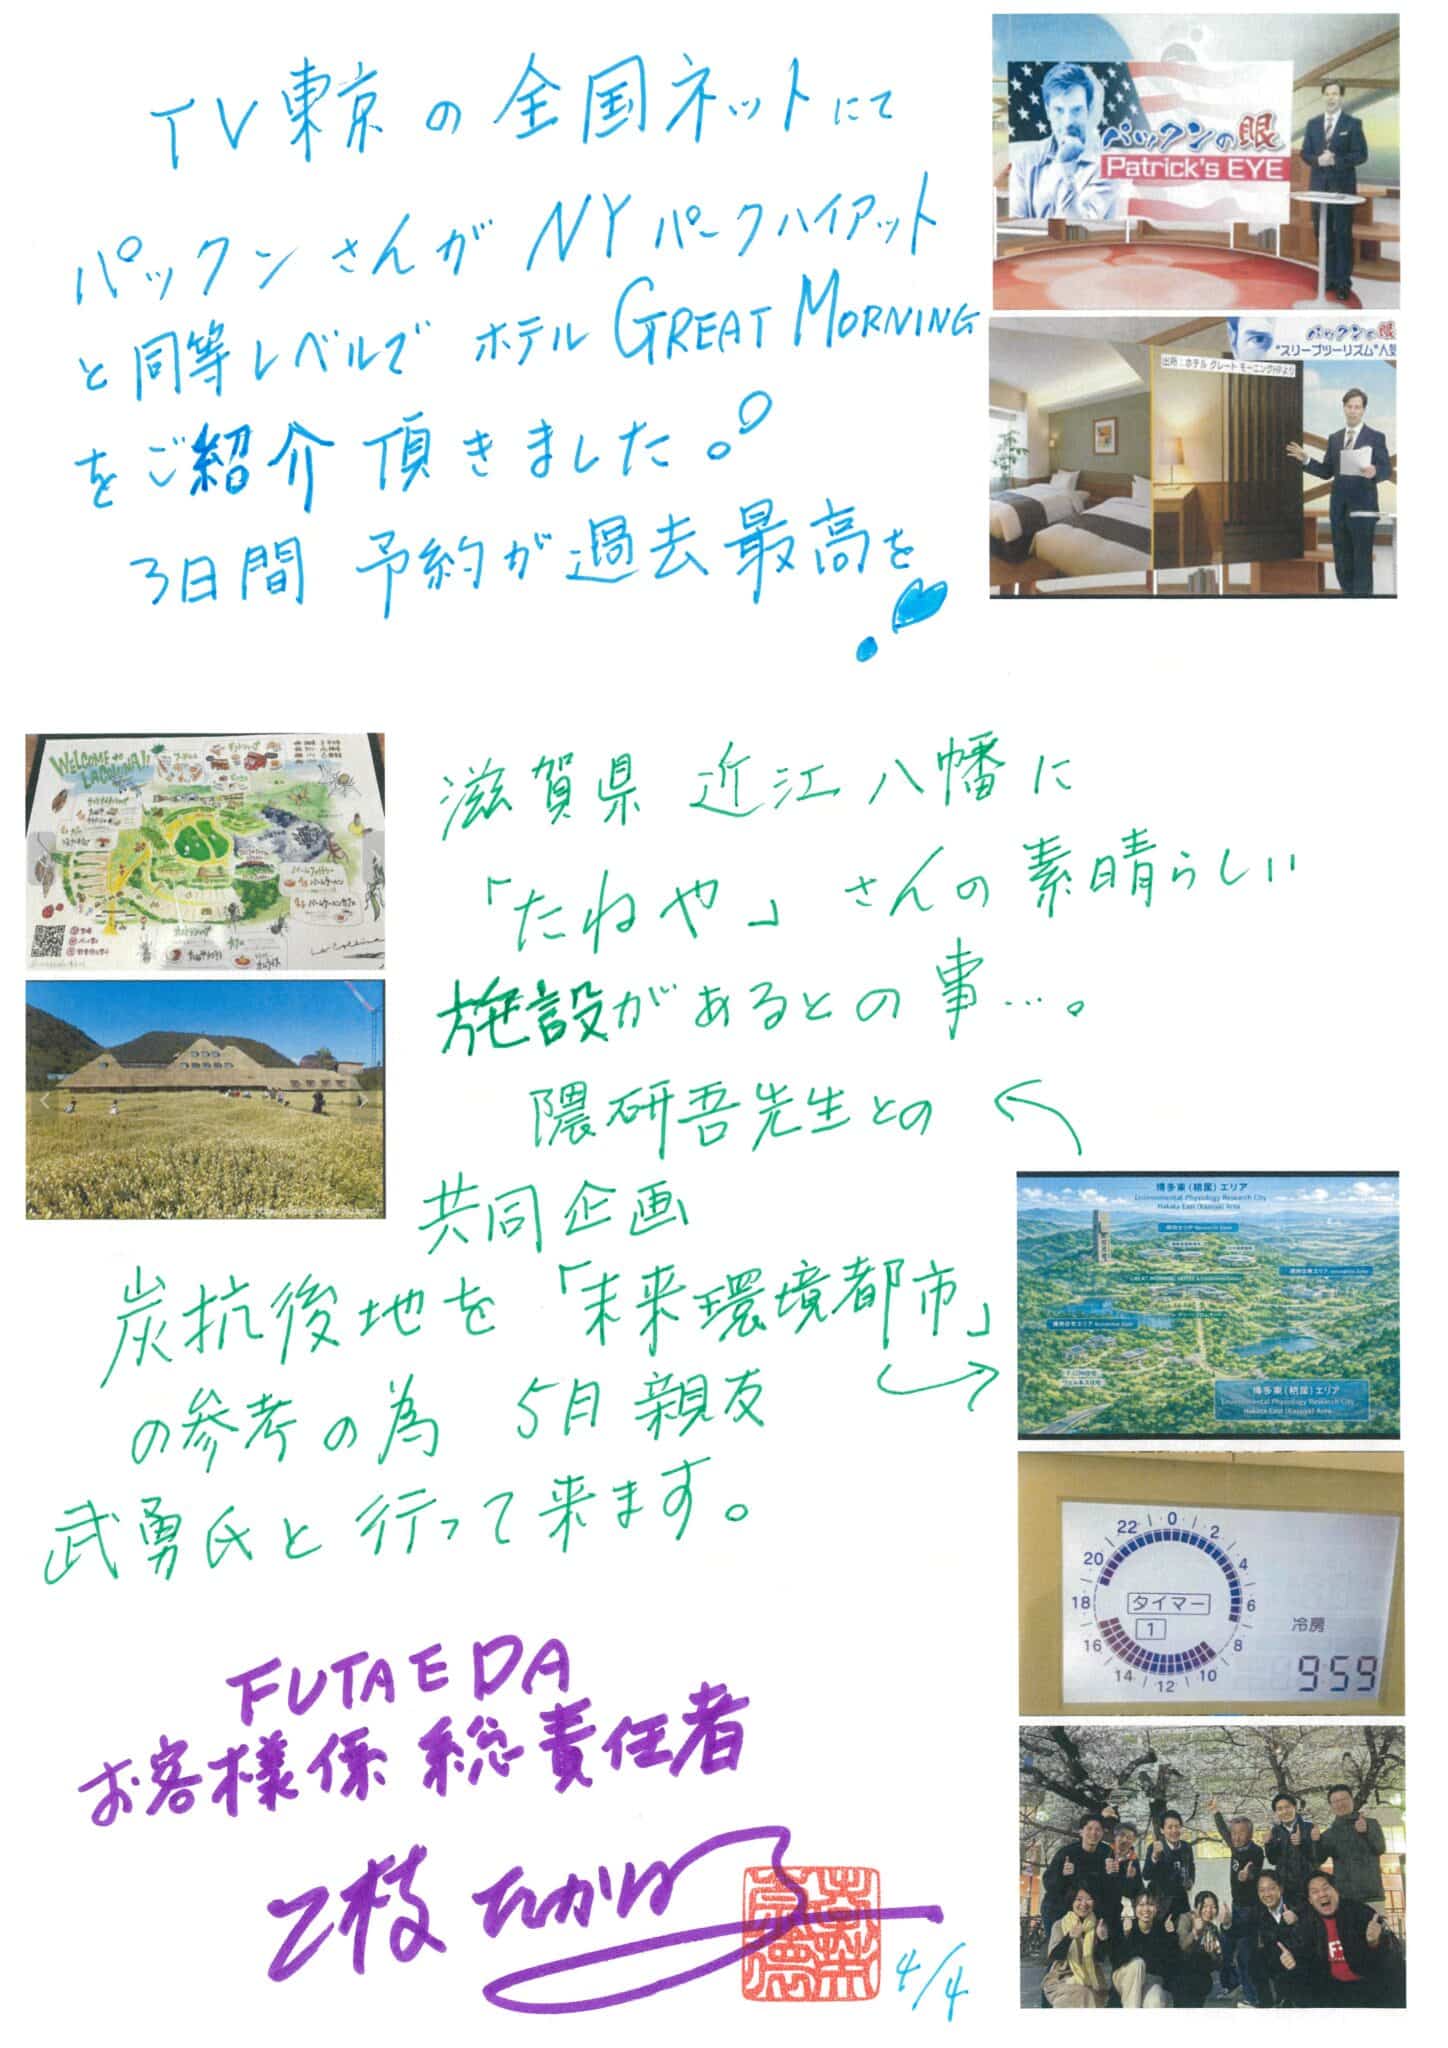 TV東京の全国ネットにて
パックンさんがNYパークハイアット
と同等レベルでホテルGREAT MORNING
をご紹介頂きました。
3日間 予約が過去最高を
!
パックンの眼
Patrick's EYE
パックンの眼
"スリープツーリズム"人気
出所:ホテル グレート モーニングHPより
WELCOME to
LACOLLINA!!
滋賀県 近江八幡に
「たねや」さんの素晴らしい
施設があるとの事…。
隈研吾先生との
共同企画
炭抗後地を「未来環境都市」
の参考の為 5月親友
武勇氏と行って来ます。
博多東(粕屋)エリア
Environmental Physiology Research City
Hakata East (Kasuya) Area
博多東(粕屋)エリア
Environmental Physiology Research City
Hakata East (Kasuya) Area
22 0 2
20 4
18 6
16 8
14 12 10
タイマー
1
冷房
9:59
FUTAEDA
お客様係 総責任者
二枝たかはる
4/4